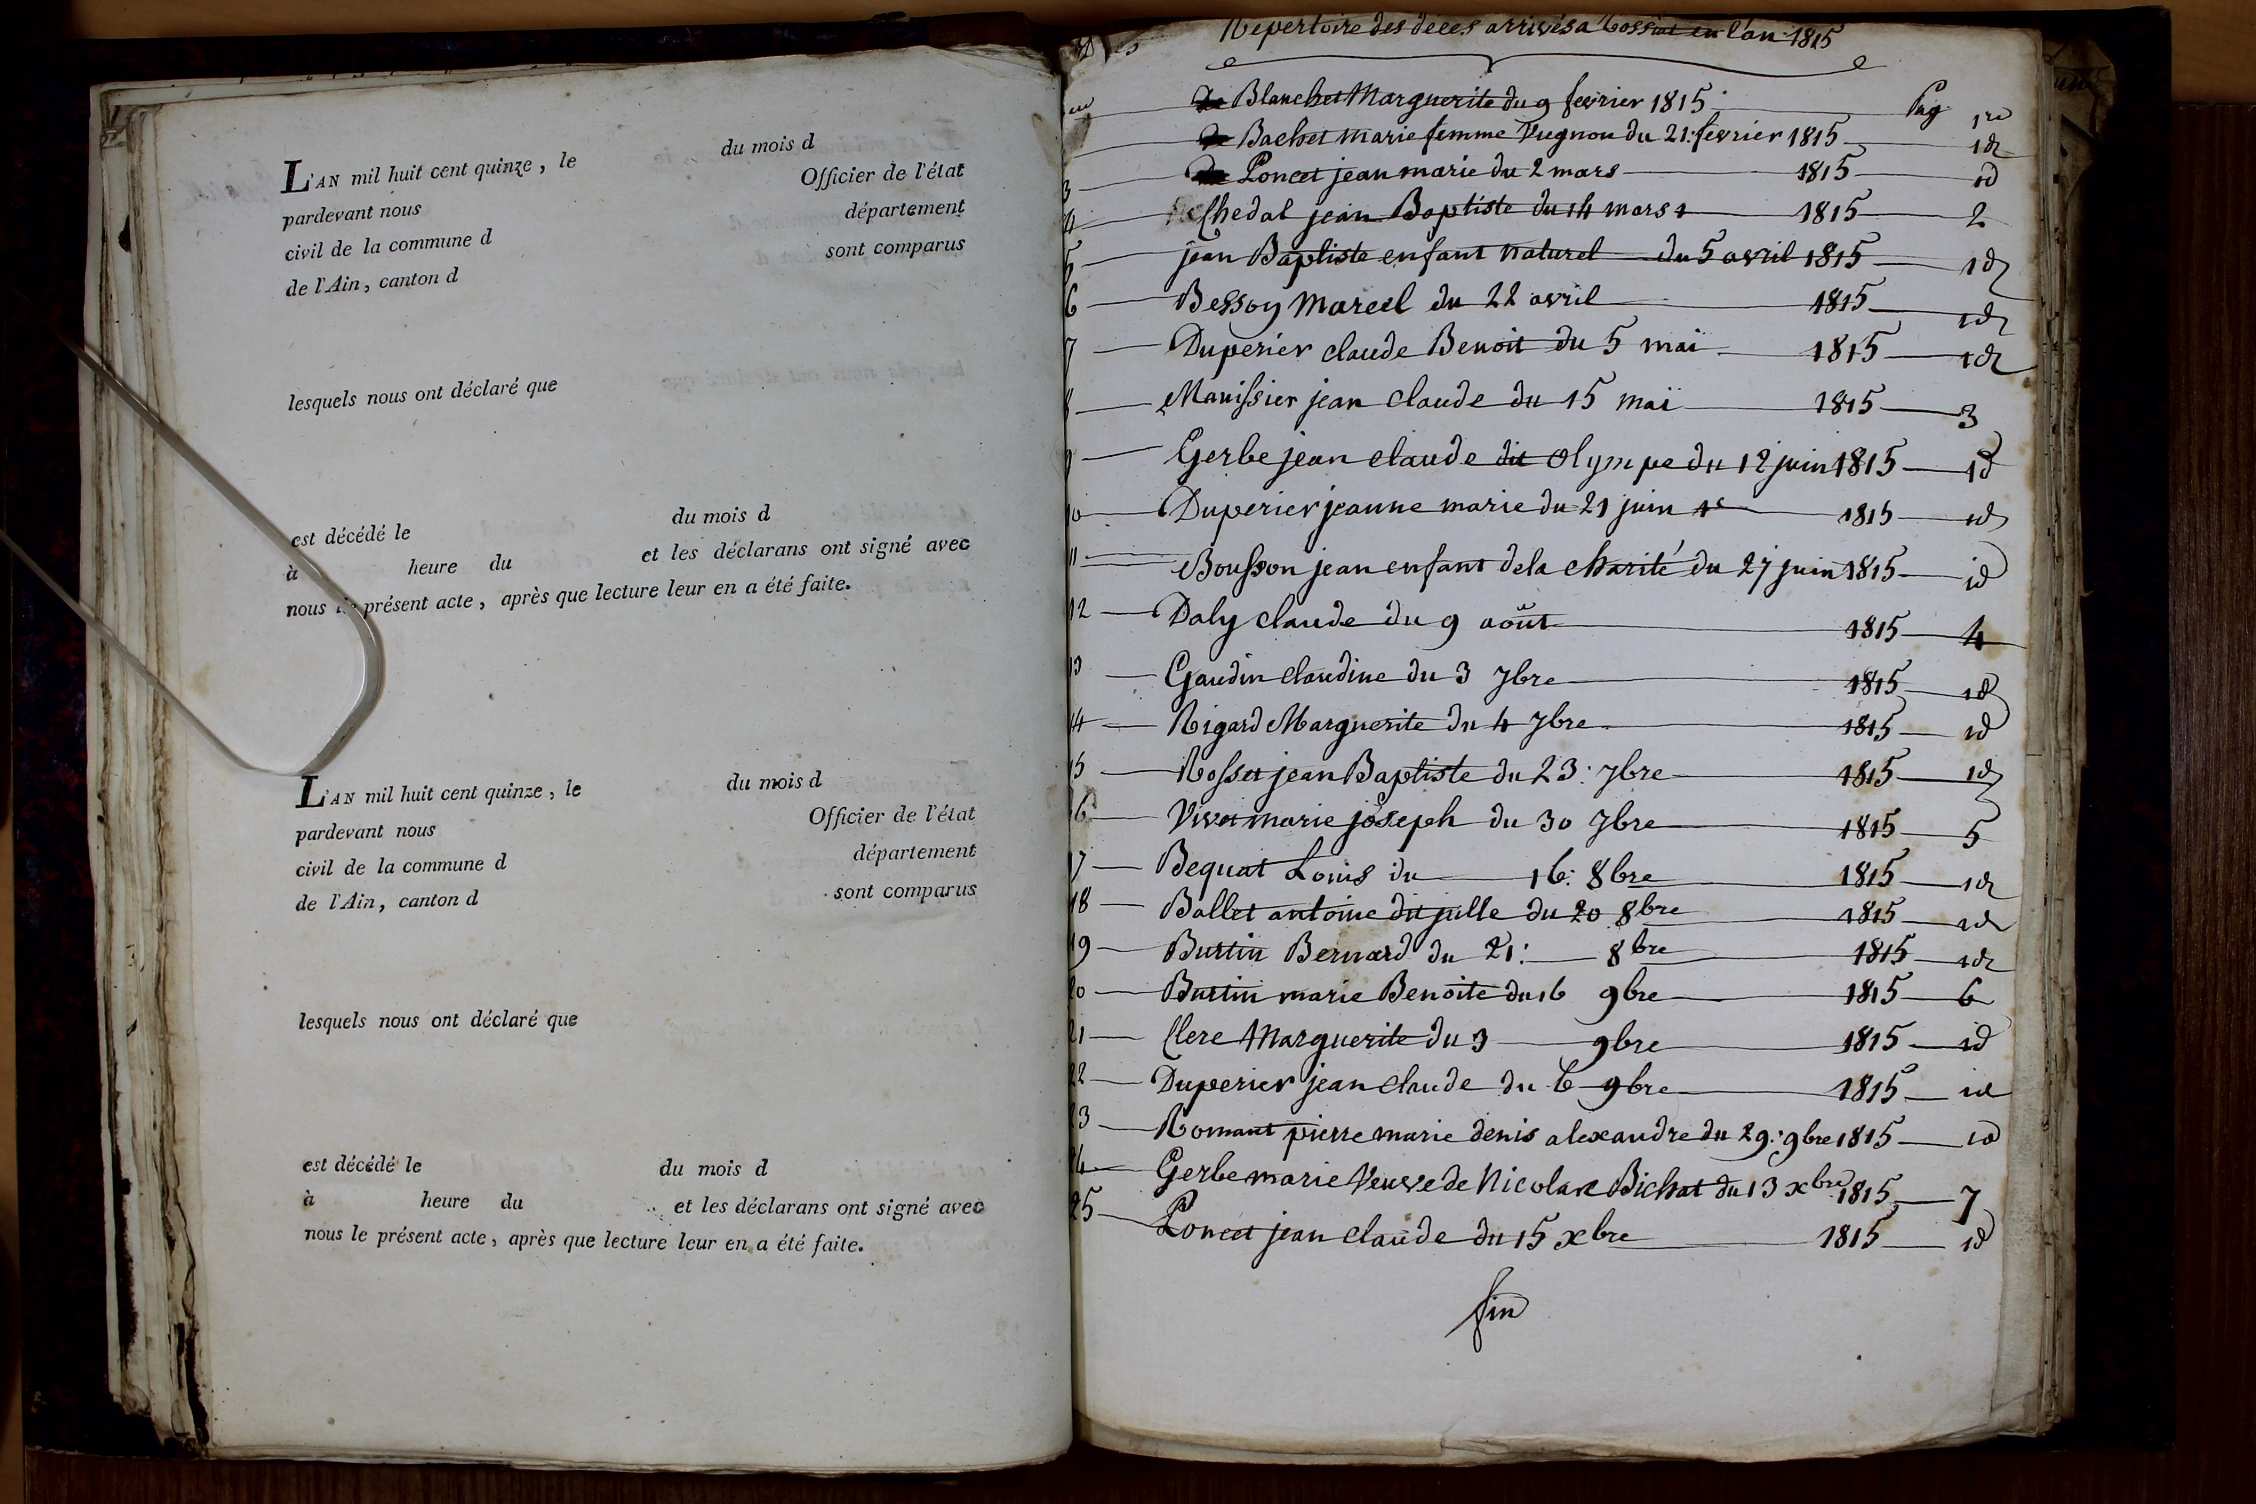 L'AN mil huit cent quinze, le du mois d
pardevant nous Officier de l'état
civil de la commune d département
de l'Ain, canton d sont comparus
lesquels nous ont déclaré que
est décédé le du mois d
à heure du et les déclarans ont signé avec
nous présent acte, après que lecture leur en a été faite.
L'AN mil huit cent quinze, le du mois d
pardevant nous Officier de l'état
civil de la commune d département
de l'Ain, canton d sont comparus
lesquels nous ont déclaré que
est décédé le du mois d
à heure du et les déclarans ont signé avec
nous le présent acte, après que lecture leur en a été faite.
Repertoire des deces arrivés a en l'an 1815
Blanchet Marguerite du 9 fevrier 1815 Pag 1re
Bachet marie femme Vugnon du 21: fevrier 1815 id
3 Poncet jean marie du 2 mars 1815 id
4 Chedal jean Baptiste du 14 mars 1815 2
5 jean Baptiste enfant naturel du 5 avril 1815 id
6 Bessoy Marcel du 22 avril 1815 id
7 Duperier claude Benoit du 5 mai 1815 id
8 Manissier jean claude du 15 maï 1815 3
9 Gerbe jean claude dit olympe du 12 juin 1815 id
10 Duperier jeanne marie du 21 juin 1815 id
11 Bousson jean enfant dela charité du 27 juin 1815 id
12 Daly claude du 9 août 1815 4
13 Gaudin claudine du 3 7bre 1815 id
14 Rigard Marguerite du 4 7bre 1815 id
15 Rosset jean Baptiste du 23: 7bre 1815 id
16 Vivet marie joseph du 30 7bre 1815 5
17 Bequat Louis du 16: 8bre 1815 id
18 Ballet antoine dit julle du 20 8bre 1815 id
19 Burtin Bernard du 21: 8bre 1815 id
20 Burtin marie Benoite du 16 9bre 1815 6
21 Clere Marguerite du 3 9bre 1815 id
22 Duperier jean claude du 6 9bre 1815 id
23 Romant pierre marie denis alexandre du 29: 9bre 1815 id
24 Gerbe marie Veuve de Nicolas Bichat du 13 xbre 1815 7
25 Poncet jean claude du 15 xbre 1815 id
fin